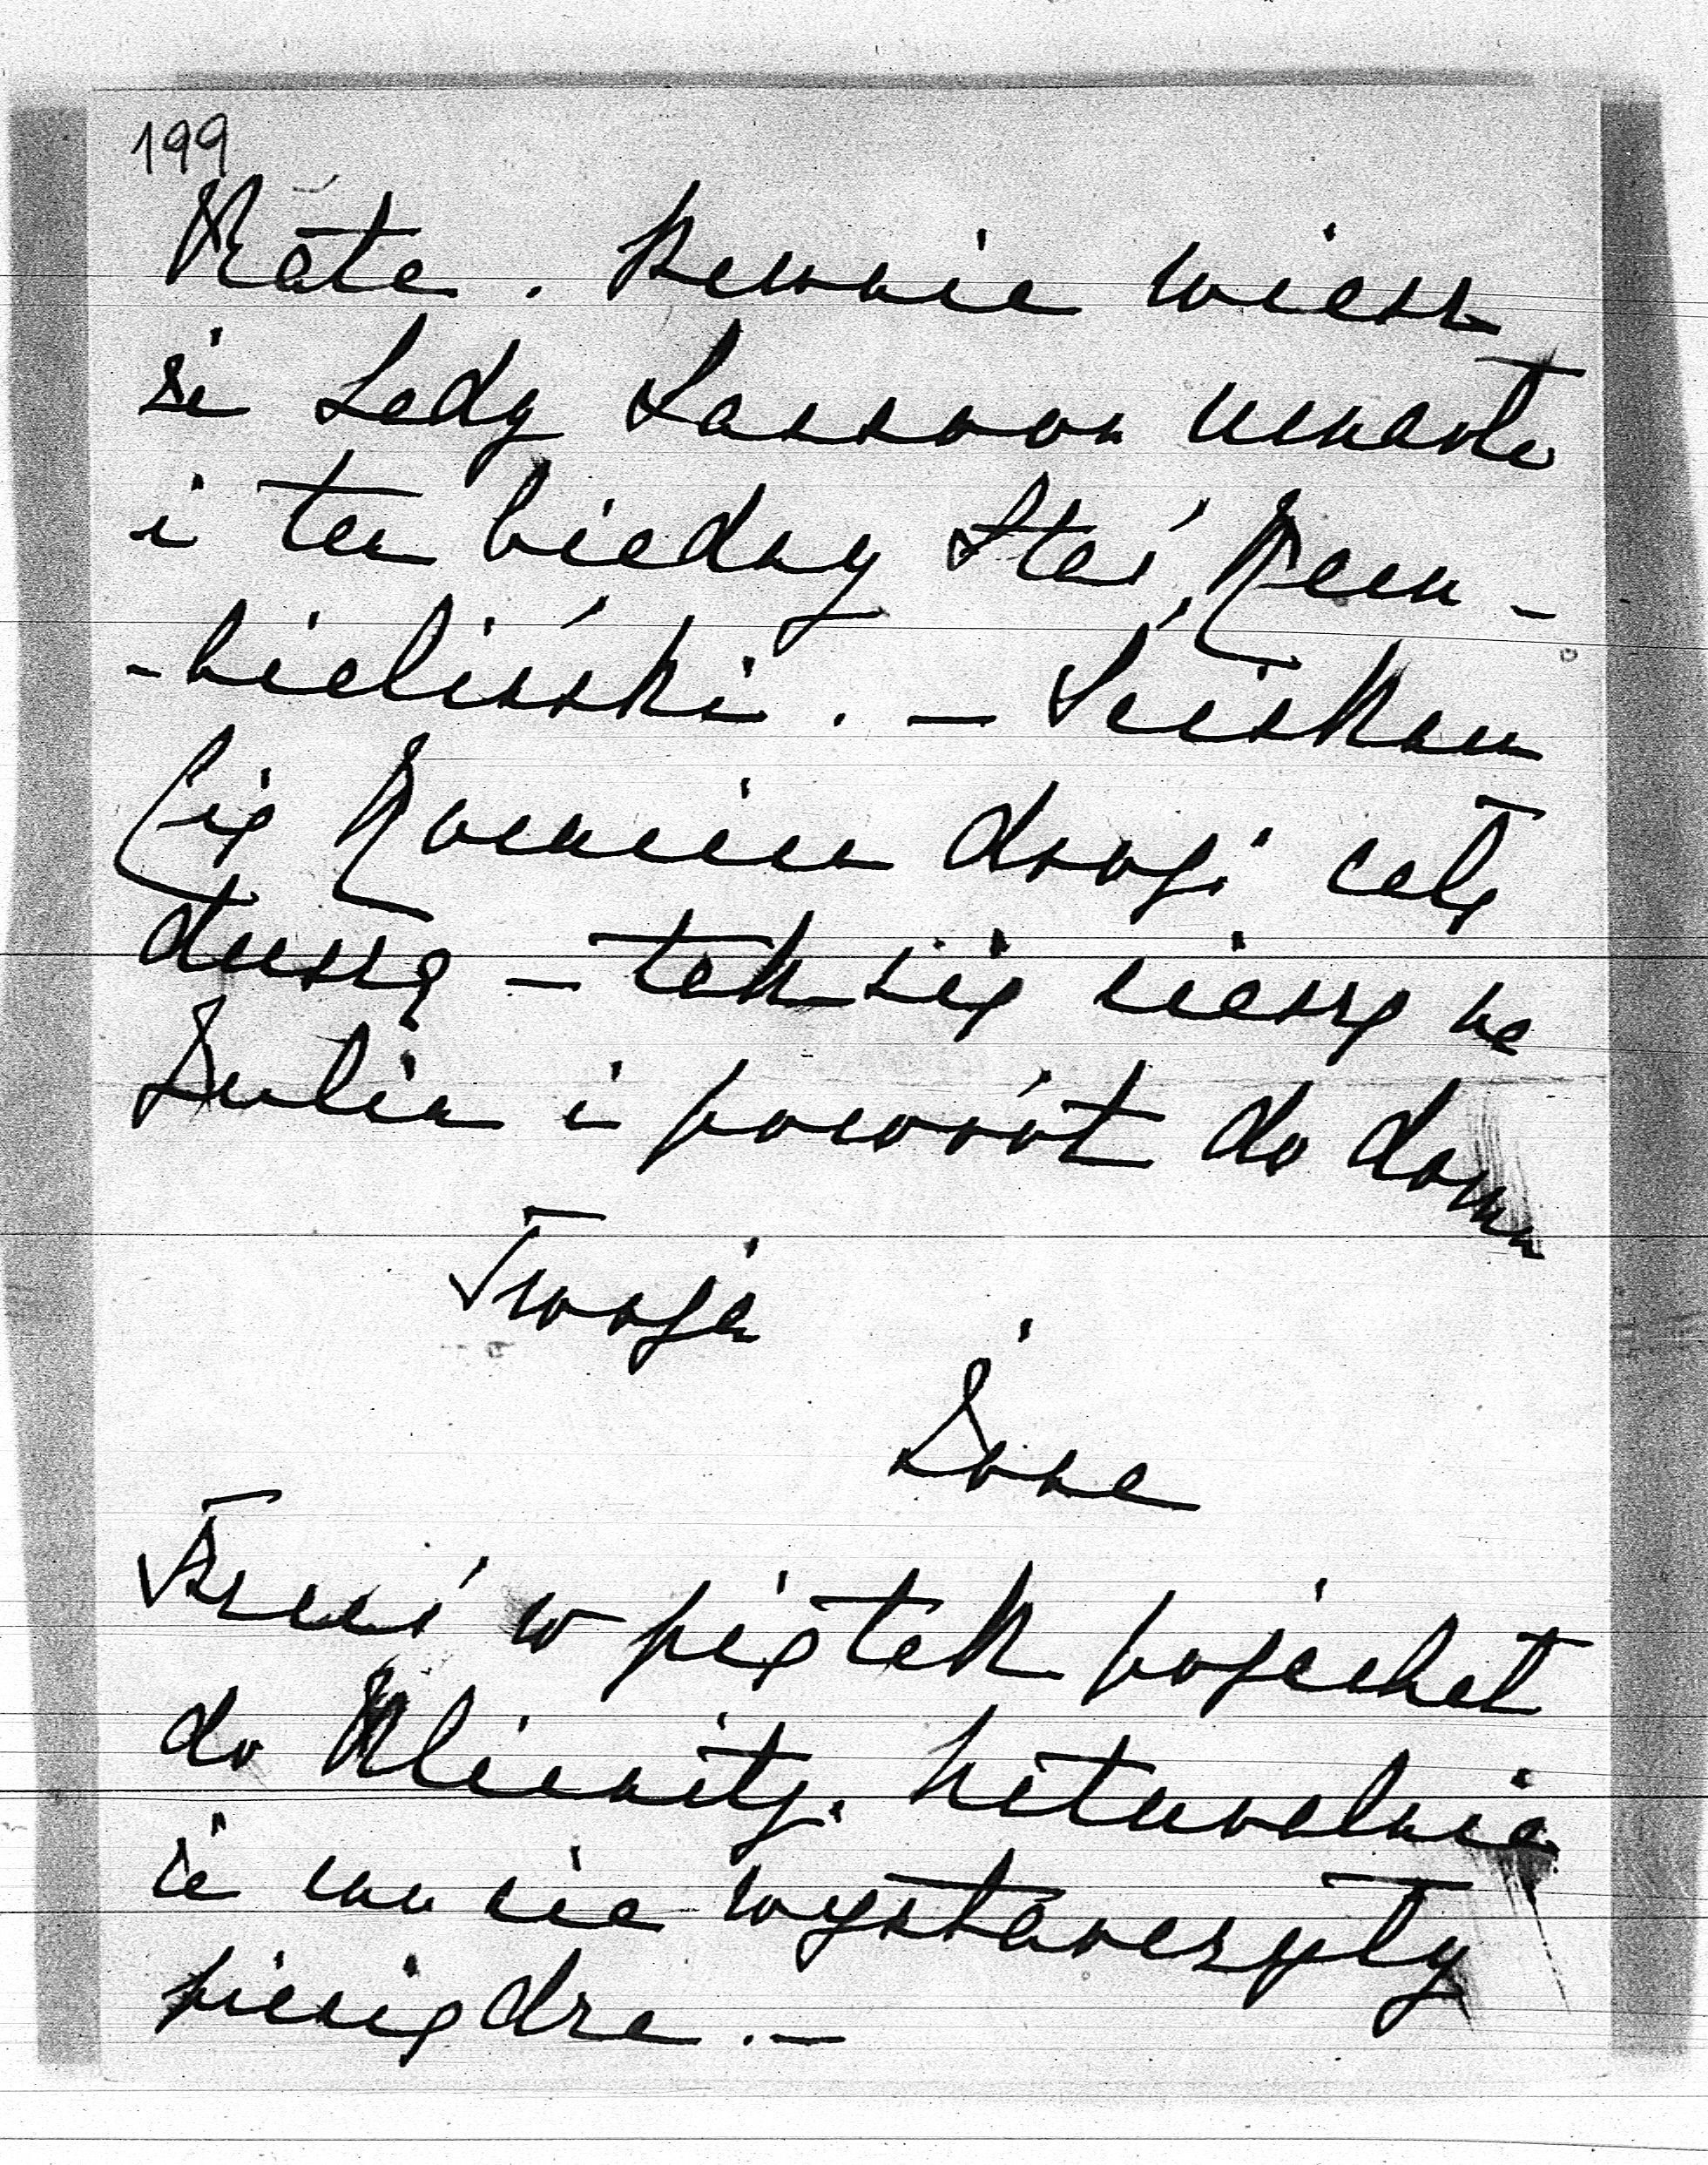 199
Kate. Pewnie wiesz
że Lady Sassoon umarła
i ten biedny Staś Rem-
-bieliński. – Ściskam
Cię Romciu drogi całą
duszą – tak się cieszę na
Lulia i powrót do domu
Twoja
Żona
w piątek pojechał
do Klienity. Naturalnie
że mu nie wystarczyły
pieniądze. –